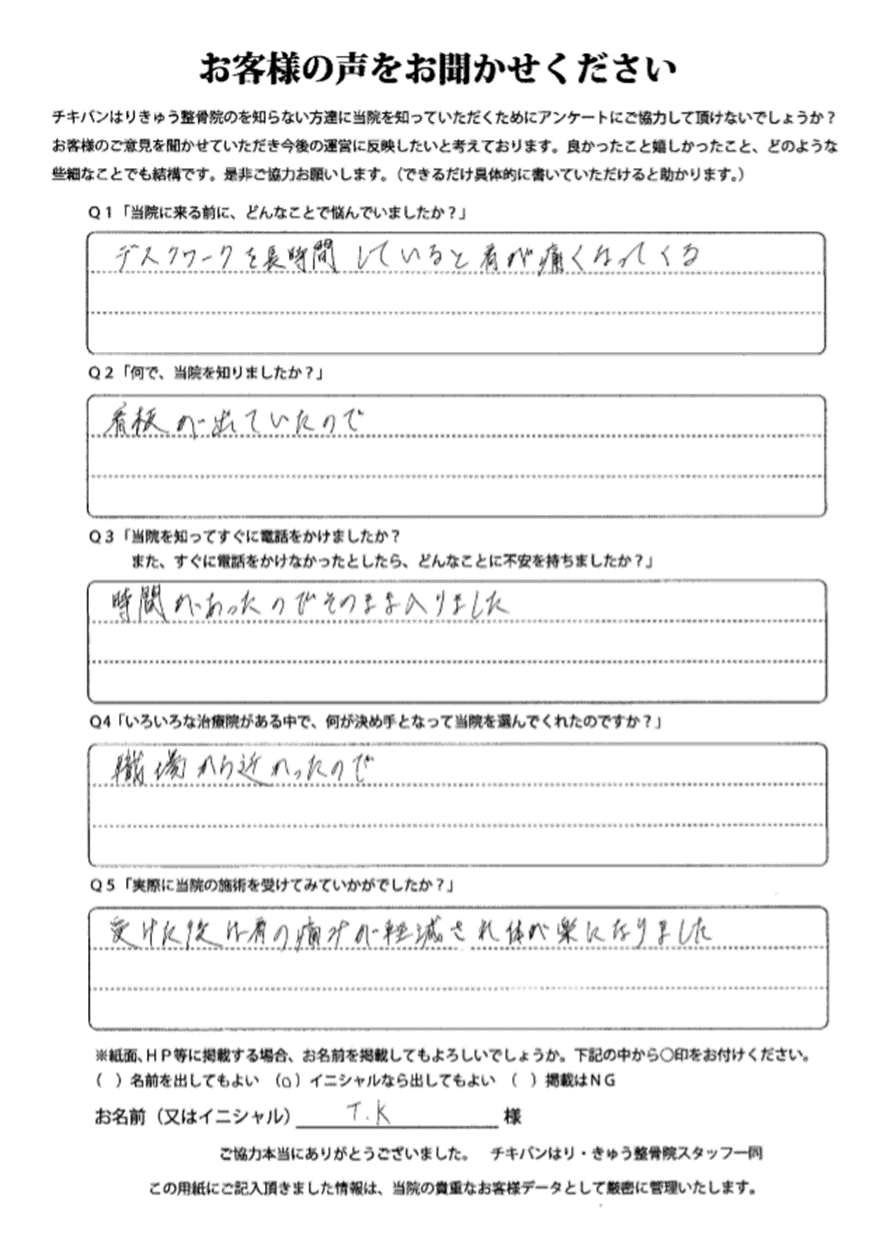 お客様の声をお聞かせください
チキバンはりきゅう整骨院のを知らない方達に当院を知っていただくためにアンケートにご協力して頂けないでしょうか?
お客様のご意見を聞かせていただき今後の運営に反映したいと考えております。良かったこと嬉しかったこと、どのような
些細なことでも結構です。是非ご協力お願いします。(できるだけ具体的に書いていただけると助かります。)
Q1「当院に来る前に、どんなことで悩んでいましたか?」
デスクワークを長時間していると肩が痛くなってくる
Q2「何で、当院を知りましたか?」
看板が出ていたので
Q3「当院を知ってすぐに電話をかけましたか?
また、すぐに電話をかけなかったとしたら、どんなことに不安を持ちましたか?」
時間があったのでそのまま入りました
Q4「いろいろな治療院がある中で、何が決め手となって当院を選んでくれたのですか?」
職場から近かったので
Q5「実際に当院の施術を受けてみていかがでしたか?」
受けた後は肩の痛みが軽減され体が楽になりました
※紙面、HP等に掲載する場合、お名前を掲載してもよろしいでしょうか。下記の中から○印をお付けください。
( )名前を出してもよい (○)イニシャルなら出してもよい ( )掲載はNG
お名前(又はイニシャル) T.K 様
ご協力本当にありがとうございました。 チキバンはり・きゅう整骨院スタッフ一同
この用紙にご記入頂きました情報は、当院の貴重なお客様データとして厳密に管理いたします。